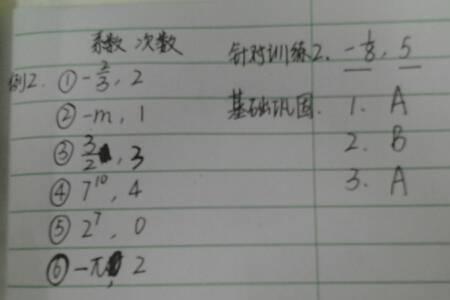 系数 次数
例2. ① -2/3, 2
② -m, 1
③ 3/2, 3
④ 7^10, 4
⑤ 2^7, 0
⑥ -π, 2
针对训练2. -1/8, 5
基础巩固. 1. A
2. B
3. A